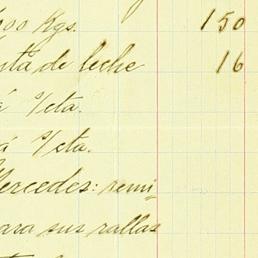 00 Kgs. 150
nta de leche 16
á c/cta.
á c/cta.
Mercedes: remi-
para sus rallas